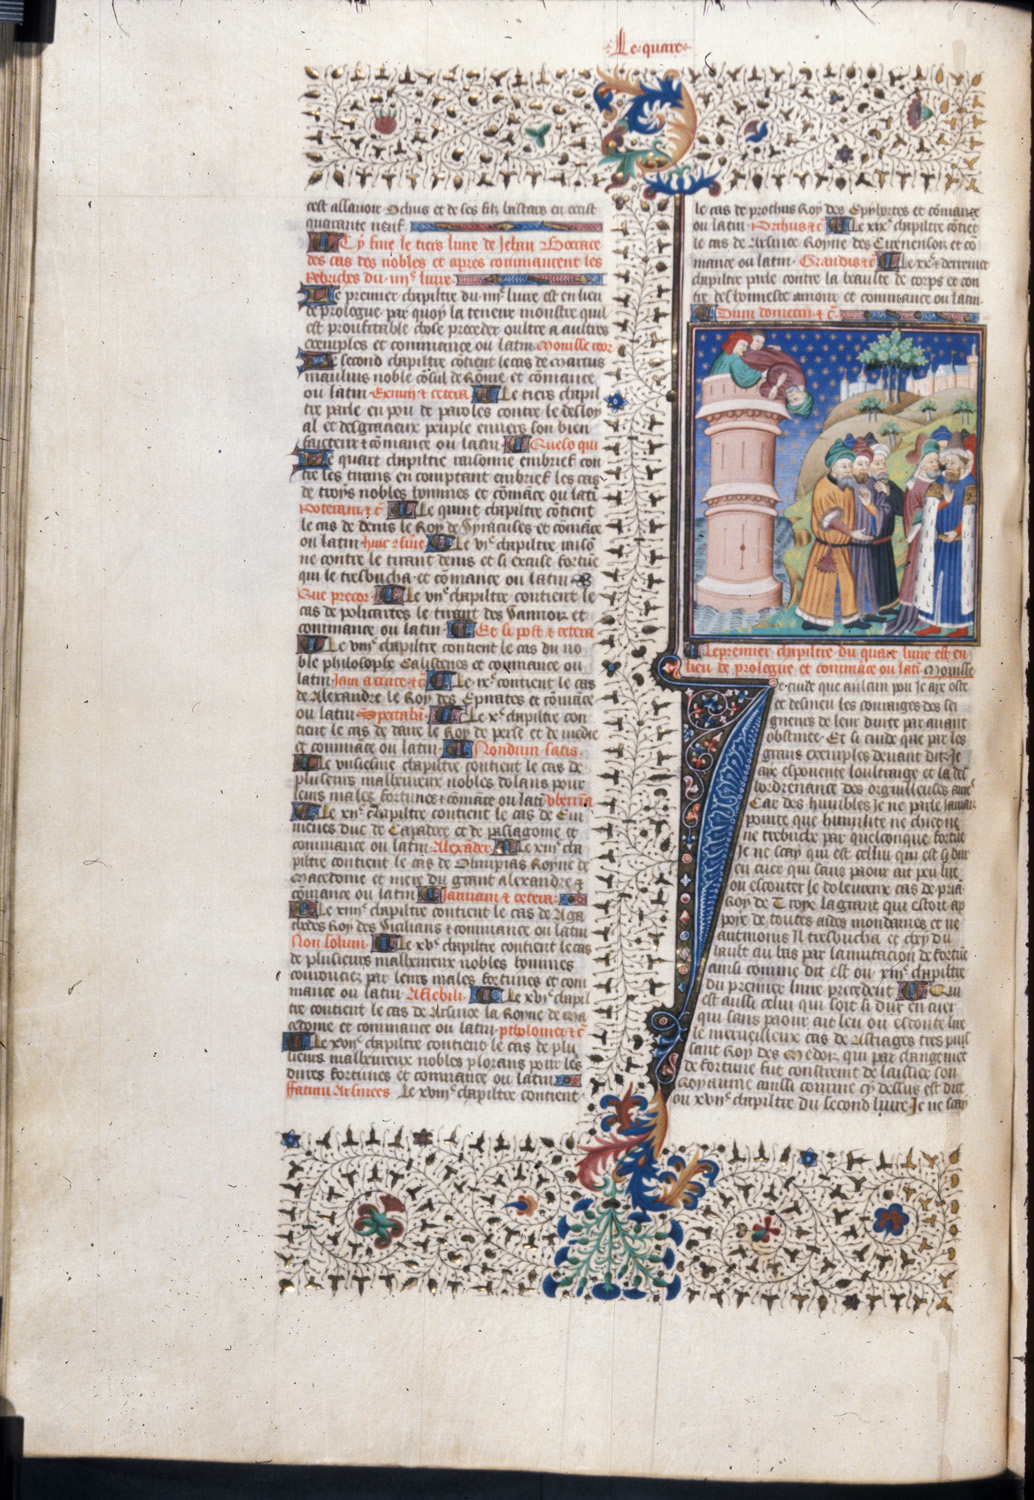 Le quart
cest assavoir Ochus et de ses filz bastars en ceist
quarante neuf
Cy fine le tiers livre de Jehan Bocace
des cas des nobles et apres commancent les
Rebriches du iiiie livre
Le premier chapitre du iiiie livre est en lieu
de prologue par quoy la teneur monstre quil
est prouffitable chose proceder oultre a aultres
exemples et commance ou latin
Le second chapitre cōtient le cas de marcus
manlius noble cōsul de Rōme et cōmance
ou latin Exnun et cetera Le tiers chapi
tre parle en pou de paroles contre le desloy
al et desgracieux peuple envers son bien
faicteur et cōmance ou latin Queso qui
Le quart chapitre raisonne embrief con
tre les tirans en comptant embrief les cas
de troys nobles hommes et cōmāce ou lati
Le quint chapitre cōtient
le cas de denis le Roy de Syracuses et cōmāce
ou latin huic sune Le vie chapitre raisō
ne contre le tirant denis et si excuse fortūe
qui le tresbucha et cōmance ou latin
Que precor Le viie chapitre contient le
cas de policrates le tirant des Samior et
commance ou latin Et si post et cetera
Le viiie chapitre contient le cas du no
ble philosophe Calistenes et commance ou
latin Jam Le ixe contient le cas
de Alexandre le Roy des Epirates et cōmāce
ou latin Spectabā Le xe chapitre con
tient le cas de daire le Roy de perse et de medie
et commāce ou latin Nondum satis
Le unsiesme chapitre contient le cas de
plusieurs malheureux nobles dolans pour
leurs males fortunes et cōmāce ou lati uberria
Le xiie chapitre contient le cas de Eu
menes duc de Capadoce et de paflagome et
commance ou latin Alexāder Le xiiie cha
pitre contient le cas de Olimpias Royne de
macedome et mere du grant alexandre et
cōmance ou latin Jannam et cetera
Le xiiiie chapitre contient le cas de Aga
thocles Roy des Sicilians et commance ou latin
Non solum Le xve chapitre contient le cas
de plusieurs malheureux nobles hommes
courouciez par leurs males fortunes et com
mance ou latin Aflebili Le xvie chapi
tre contient le cas de Arsinoe la Royne de ma
cedome et commance ou latin ptholomei et c̄
Le xviie chapitre contient le cas de plu
sieurs malheureux nobles plorans pour les
dures fortunes et commance ou latin
ffatian Arsinoes Le xviiie chapitre contient
le cas de pirrhus Roy des Epyrotes et cōmance
ou latin et c̄ Le xixe chapitre cōtiēt
le cas de Arsinoe Royne des Cirenensor et cō
mance ou latin Grandis et c̄ Le xxe et derrenier
chapitre parle contre la beaulte de corps et con
tre deshonneste amour et commance ou latin
Dum et c̄
Le premier chapitre du quart livre est en
lieu de prologue et commāce ou lati Monisse
et cuide que aulcun pou je aye oste
et desmeu les couraiges des sei
gneurs de leur durte par avant
obstinee Et si cuide que par les
grans exemples devant ditz Je
aye esponente loultraige et la des
hordrenance des orguilleuses
Car des humbles Je ne parle Jamais
pource que humilite ne chiet ne
ne trebuche par quelconque fortūe
Je ne scay qui est cellui qui est si dur
en cuer qui sans paour ait peu lire
ou escouter le doleureux cas de pria
Roy de Troye la grant qui estoit ap
poye de toutes aides mondaines et ne
autmonis Il tresbucha et chey du
hault au bas par la mutacion de fortūe
ainsi comme dit est ou xiiie chapitre
du premier livre precedent Qui
est aussi celui qui soit si dur en cuer
qui sans paour ait leu ou escoute lire
le merveilleux cas de Astiages tres puis
sant Roy des Medor qui par changemēt
de fortune fut constreint de laissier son
Royaume ainsi comme cy dessus est dit
ou xviie chapitre du second livre Je ne scay